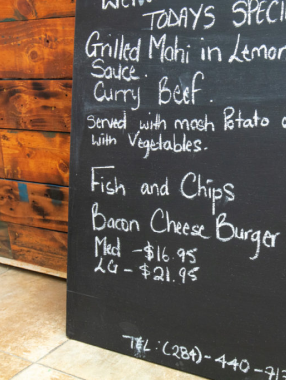 TODAYS SPECI
Grilled Mahi in Lemon
Sauce.
Curry Beef.
Served with mash Potato
with Vegetables.
Fish and Chips
Bacon Cheese Burger
Med - $16.95
LG - $21.95
TEL: (284) - 440 - 913